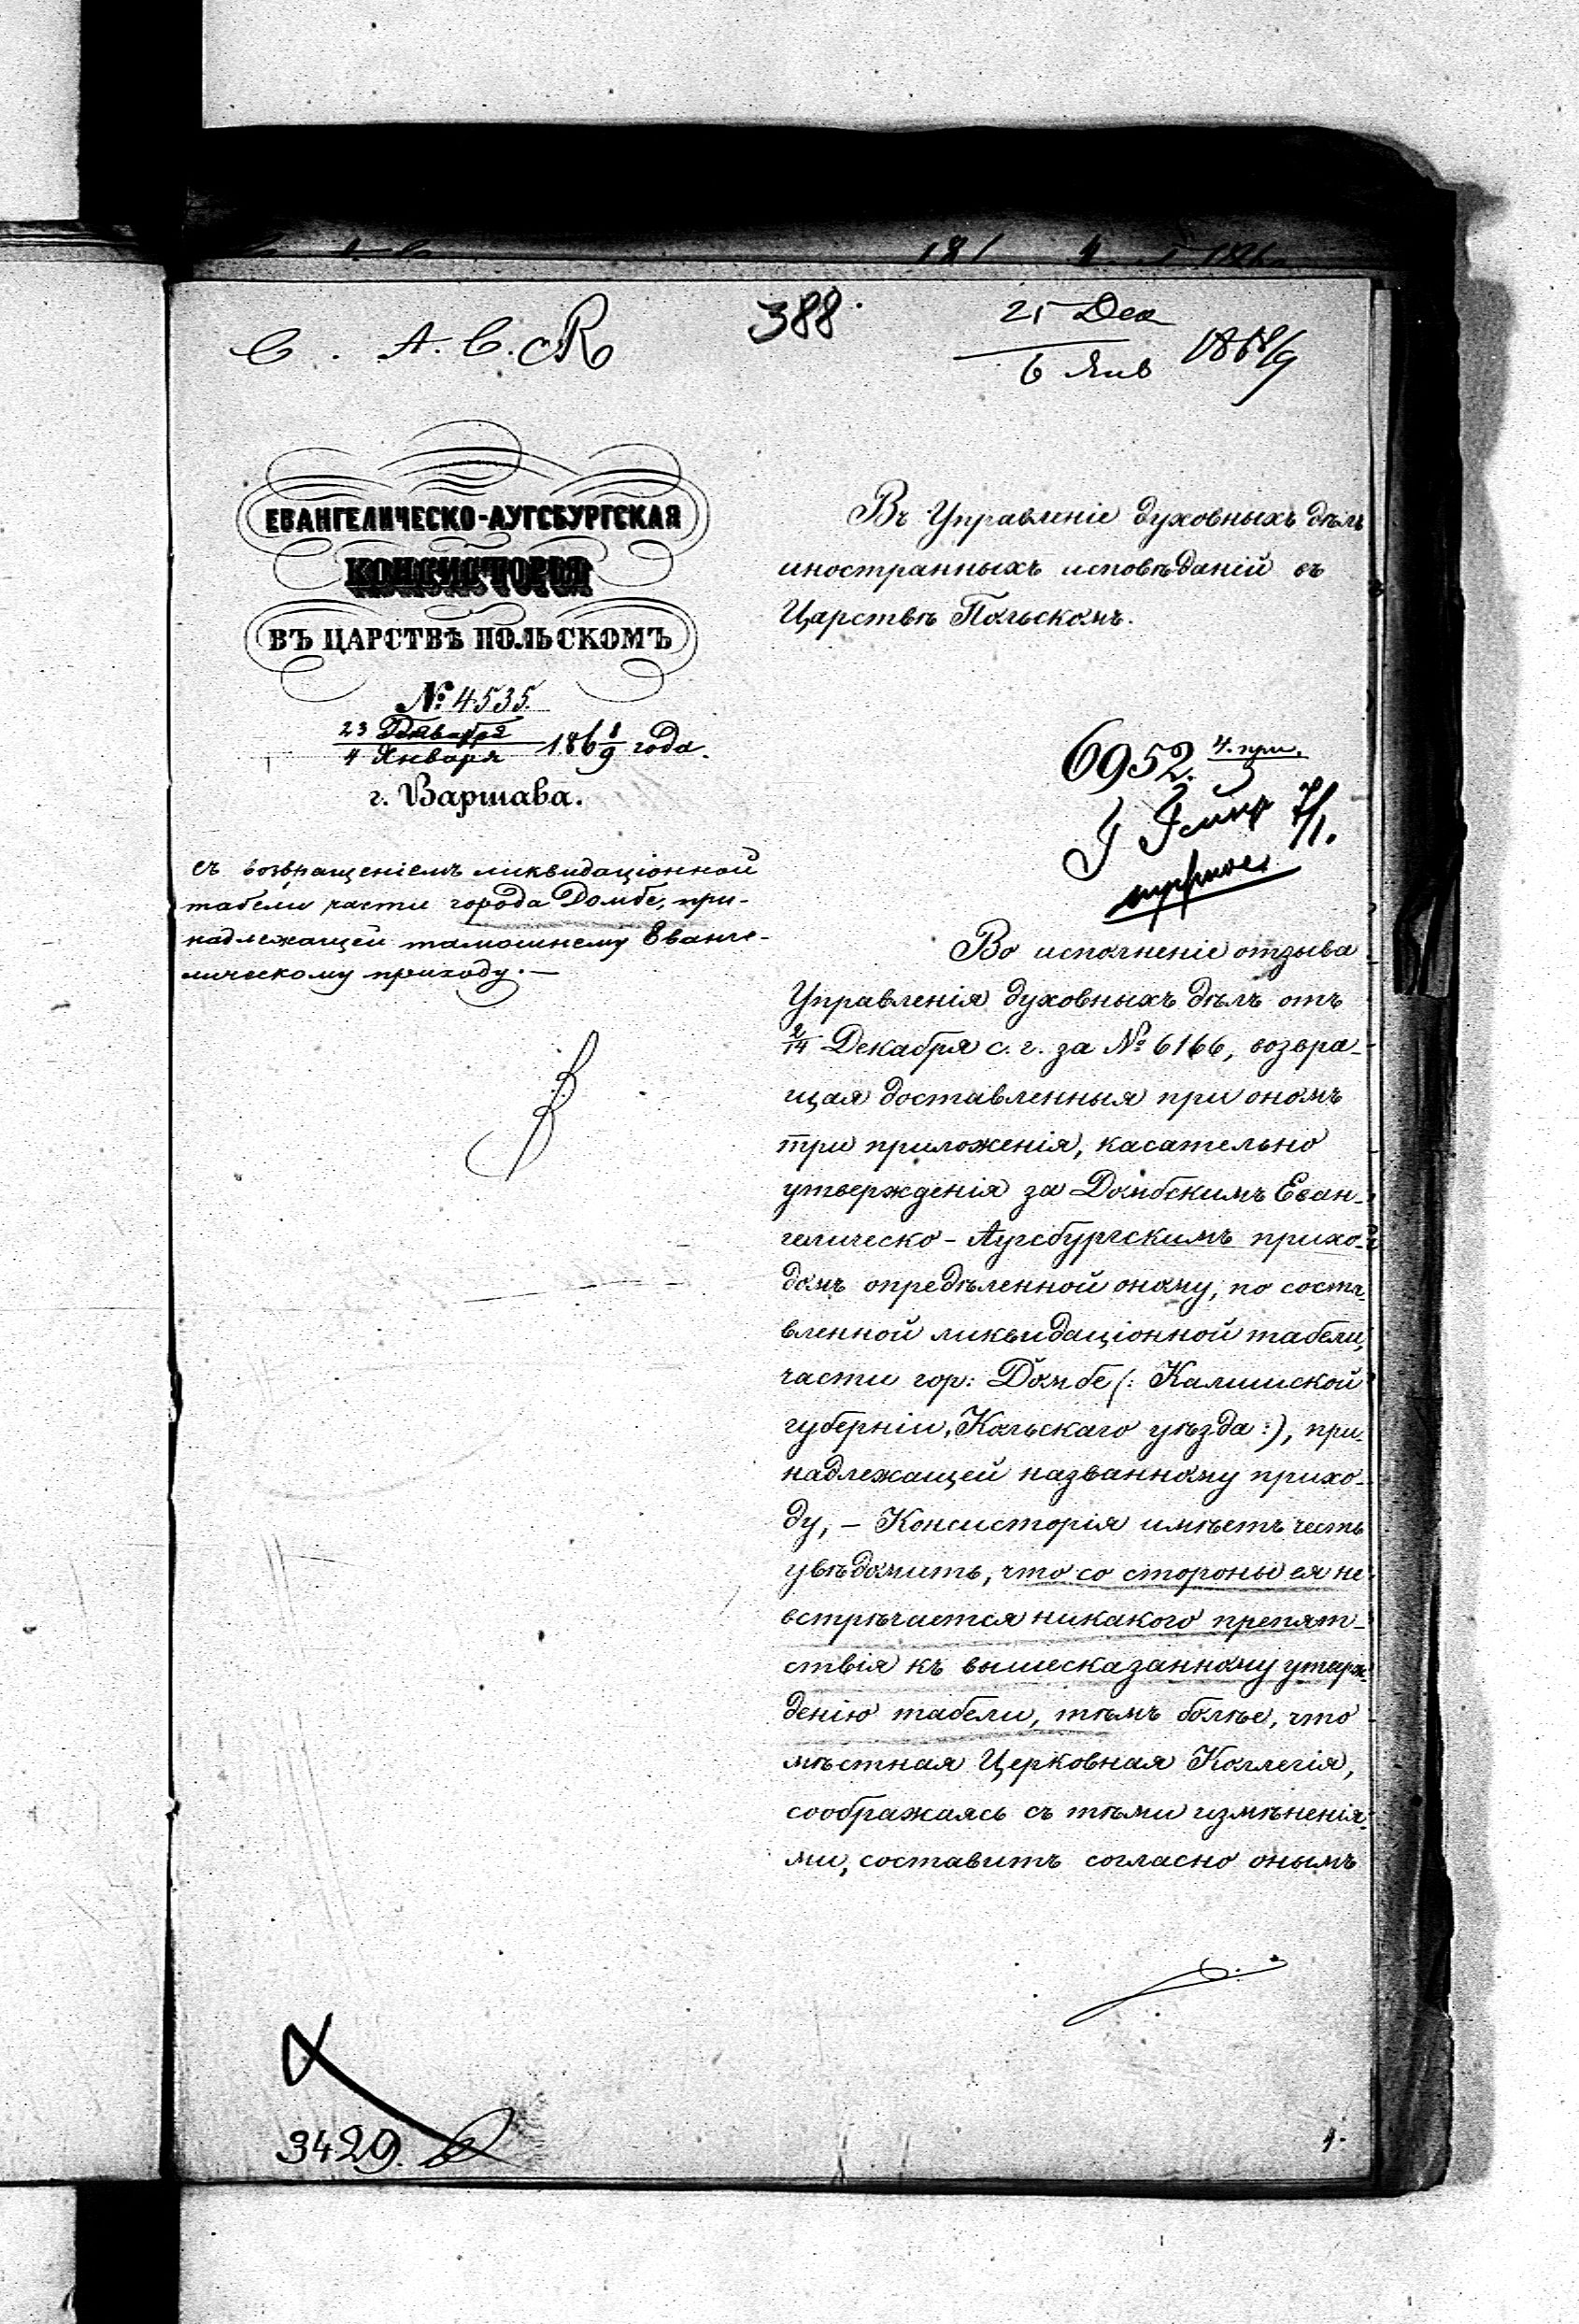 388.
25 Дек
6 Янв 1868/9
ЕВАНГЕЛИЧЕСКО-АУГСБУРГСКАЯ
КОНСИСТОРІЯ
ВЪ ЦАРСТВѢ ПОЛЬСКОМЪ
№ 4535.
23 Декабря
4 Января 1868/9 года.
г. Варшава.
съ возвращеніемъ ликвидаціонной
табели части города Домбе, при-
надлежащей тамошнему Еванге-
лическому приходу.—
Въ Управленіе духовныхъ дѣлъ
иностранныхъ исповѣданій въ
Царствѣ Польскомъ.
6952. 4. при.
7/1.
Во исполненіе отзыва
Управленія духовныхъ дѣлъ отъ
2/14 Декабря с. г. за № 6166, возвра-
щая доставленныя при ономъ
три приложенія, касательно
утвержденія за Домбскимъ Еван-
гелическо-Аугсбургскимъ прихо-
домъ опредѣленной оному, по соста-
вленной ликвидаціонной табели,
части гор: Домбе (: Калишской
губерніи, Кольскаго уѣзда :), при-
надлежащей названному прихо-
ду, — Консисторія имѣетъ честь
увѣдомить, что со стороны ея не
встрѣчается никакого препят-
ствія къ вышесказанному утверж-
денію табели, тѣмъ болѣе, что
мѣстная Церковная Коллегія,
соображаясь съ тѣми измѣненія-
ми, составитъ согласно онымъ
3429.